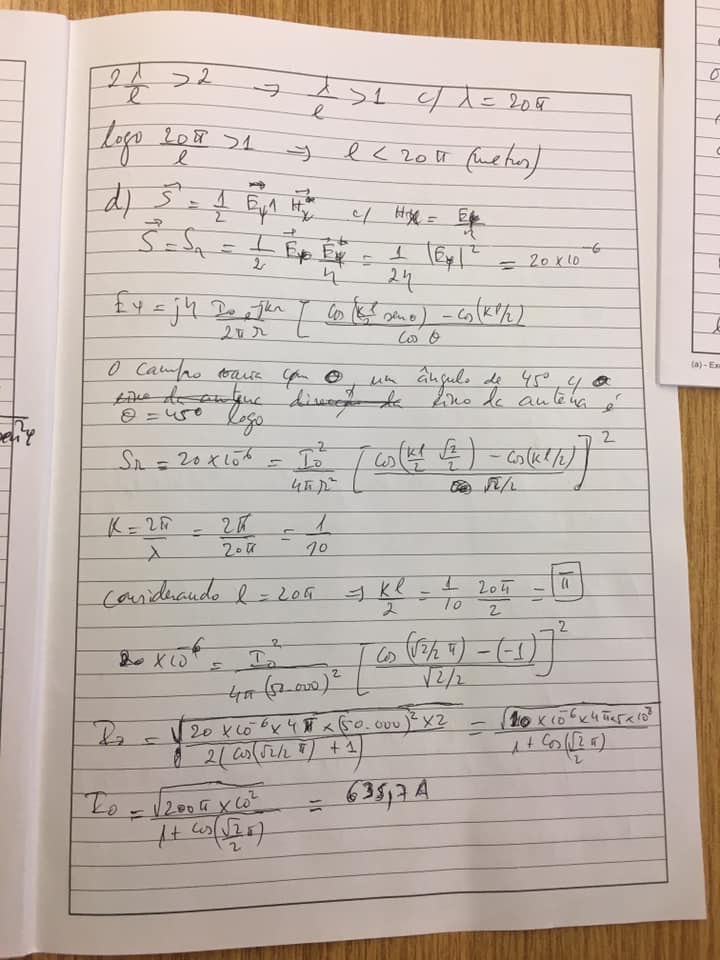 2λ/l > 2 ⇒ λ/l > 1 c/ λ = 20π
logo 20π/l > 1 ⇒ l < 20π (metros)
d) S⃗ = 1/2 E⃗ψ ∧ H⃗χ* c/ Hχ = Eψ/η
S⃗ = Sr = 1/2 E⃗ψ E⃗ψ*/η = 1/2η |Eψ|² = 20×10⁻⁶
Eψ = jη I₀ e^-jkr/2πr [cos(kl/2 senθ) - cos(kl/2)/cos θ
O campo varia com θ, um ângulo de 45º c/ o
eixo da antena é
θ = 45º logo
Sr = 20×10⁻⁶ = I₀²/4πr² [cos(kl/2 √2/2) - cos(kl/2)/√2/2]²
K = 2π/λ = 2π/20π = 1/10
Considerando l = 20π ⇒ kl/2 = 1/10 20π/2 = π
20×10⁻⁶ = I₀²/4π(50.000)² [cos(√2/2 π) - (-1)/√2/2]²
I₀ = √20×10⁻⁶×4π×(50.000)²×2/2(cos(√2/2 π) + 1) = √10×10⁻⁶×4π×5×10⁸/1+cos(√2/2 π)
I₀ = √200π×10²/1+cos(√2/2 π) = 635,7A
(a) - Ex